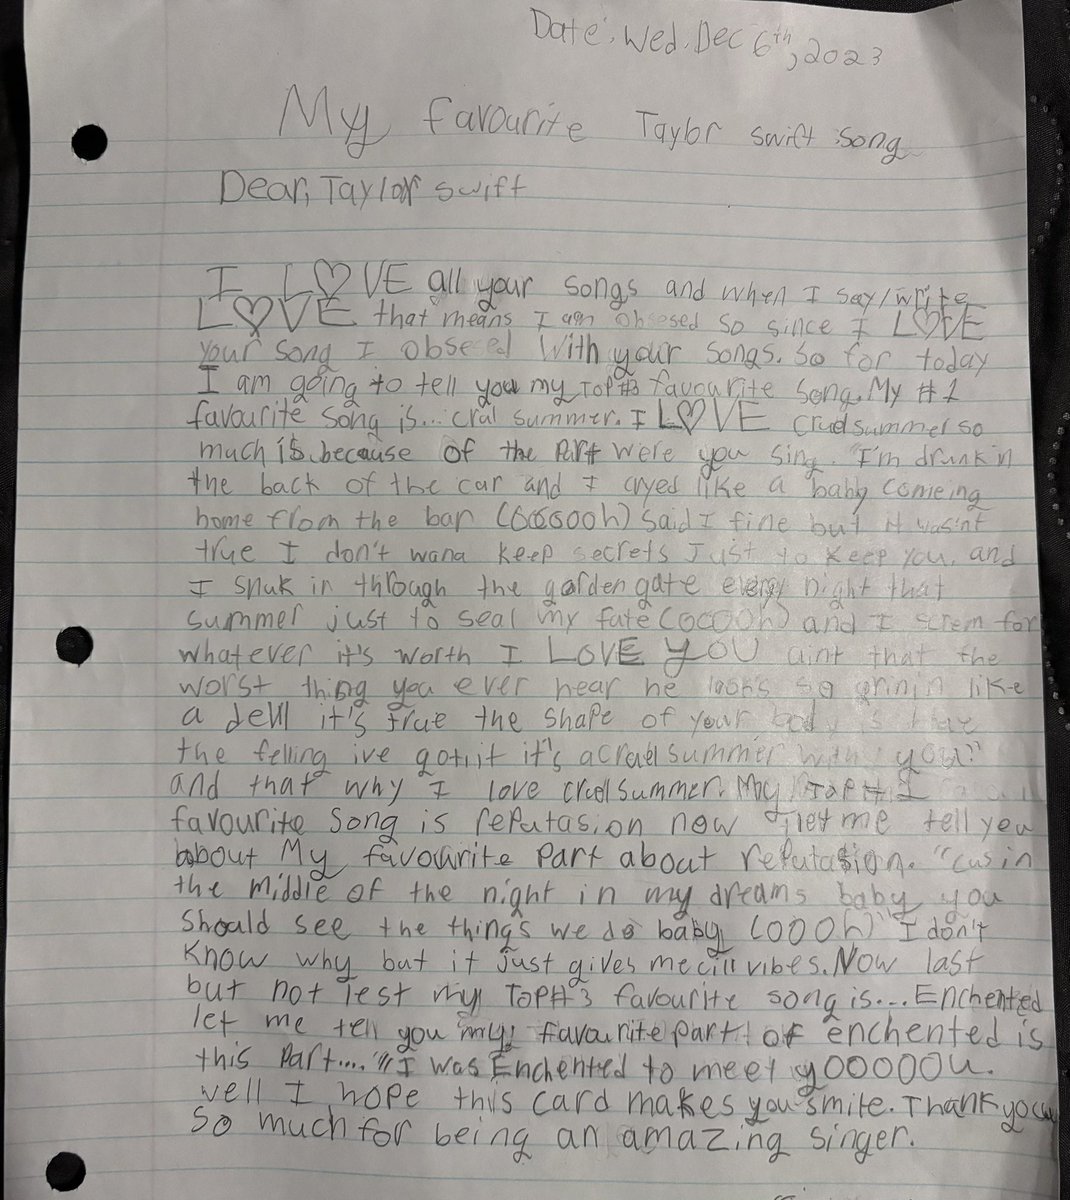 Date: Wed. Dec 6th, 2023
My favourite Taylor swift song
Dear, Taylor swift
I L♡VE all your songs and when I say/write
L♡VE that means I am obsesed so since I L♡VE
your song I obsesed with your songs. So for today
I am going to tell you my TOP#3 favourite song. My #1
favourite song is... cral summer. I L♡VE cruel summer so
much is because of the Part were you sing. I'm drunk in
the back of the car and I cryed like a baby comeing
home from the bar (oooooh) said I fine but it wasint
true I don't wana keep secrets Just to keep you, and
I snuk in through the garden gate every night that
summer just to seal my fate (ooooh) and I screm for
whatever it's worth I LOVE YOU aint that the
worst thing you ever hear he looks so grinin like
a devil it's true the shape of your body is
the felling ive got it it's a cruel summer with you"
and that why I love cruel summer. My TOP#
favourite song is reputasion now let me tell you
about My favourite Part about reputasion. "cus in
the middle of the night in my dreams baby you
should see the things we do baby (oooh)" I don't
know why but it just gives me cill vibes. Now last
but not lest my TOP#3 favourite song is... Enchented
let me tell you my favourite part of enchented is
this Part.... "I was Enchented to meet yoooooou.
well I hope this card makes you smile. Thank you
so much for being an amazing singer.